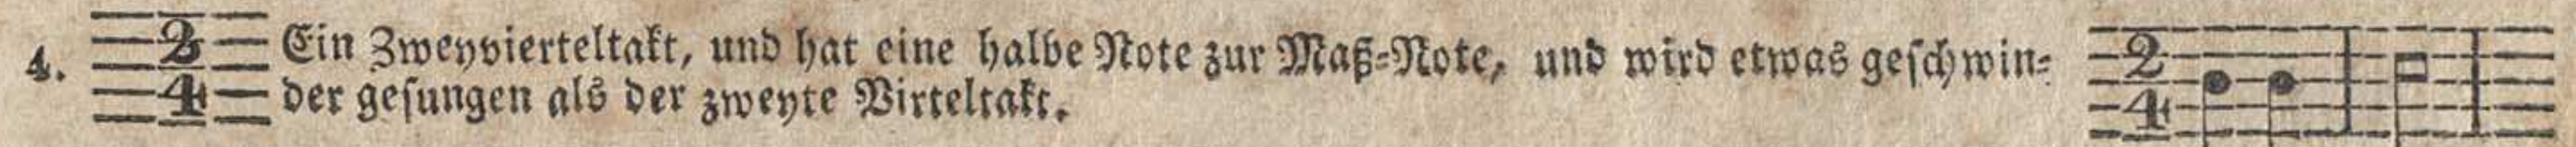 4. 2/4 Ein Zweyvierteltakt, und hat eine halbe Note zur Maß=Note, und wird etwas geſchwin= 2/4
der geſungen als der zweyte Virteltakt.